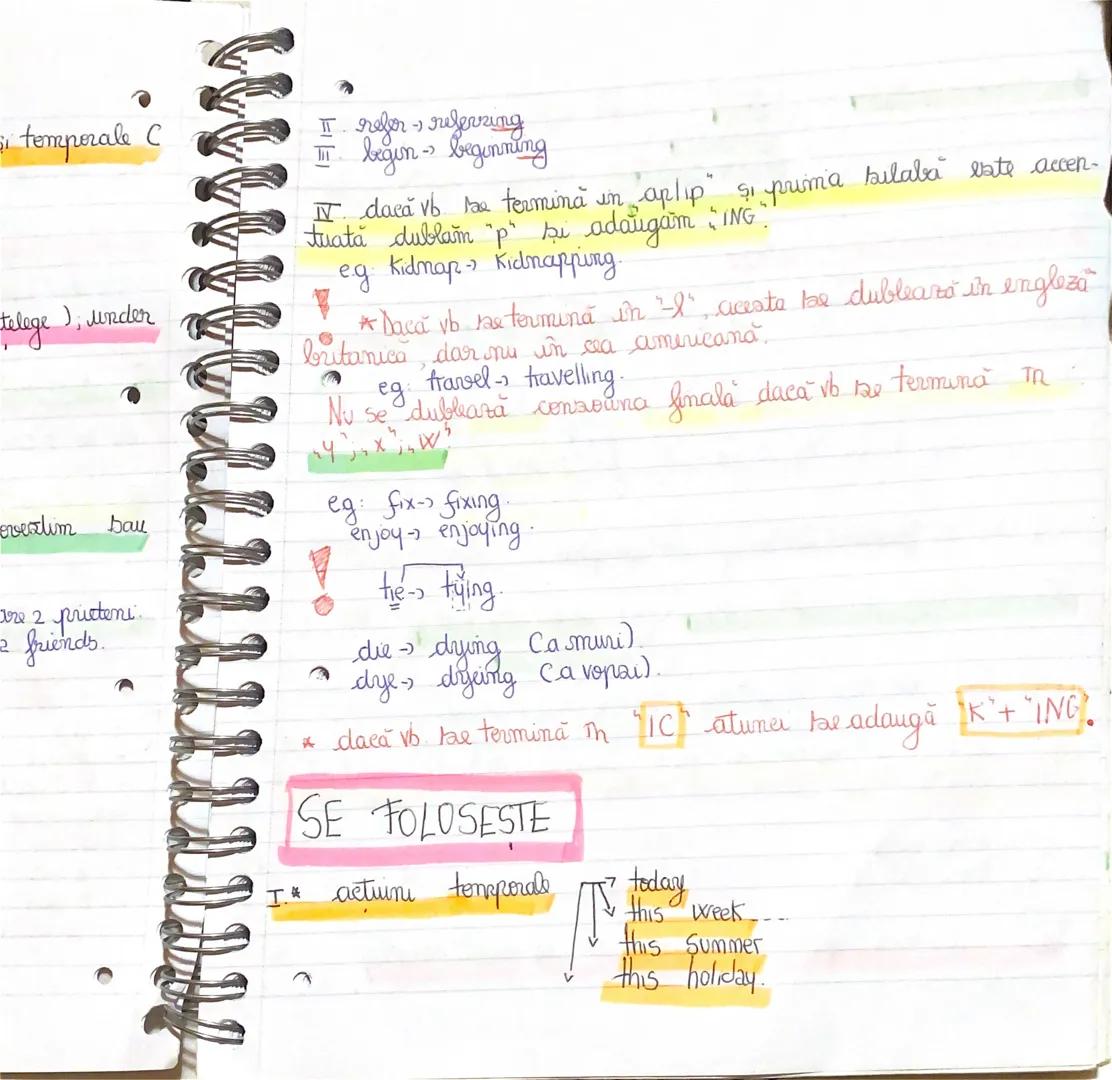 și temporale C
telege ), under
sau
2 prieteni.
2 friends.
II. refer → referring
III. begin → beginning
IV. dacă vb se termină în „ap/ip" și prima silabă este accen-
tuată dublăm "p" și adăugăm „ING".
e.g. Kidnap → Kidnapping.
! * Dacă vb se termină în "-l", acesta se dublează în engleză
britanică, dar nu în cea americană.
eg: travel → travelling.
Nu se dublează consoana finală dacă vb se termină în
„y"; „x"; „w"
eg: fix → fixing.
enjoy → enjoying.
! tie → tying.
die → dying (a muri).
dye → dyeing (a vopsi).
* dacă vb se termină în "IC" atunci se adaugă "K" + "ING".
SE FOLOSEȘTE
I.* acțiuni temporale → today
this week....
this summer
this holiday.